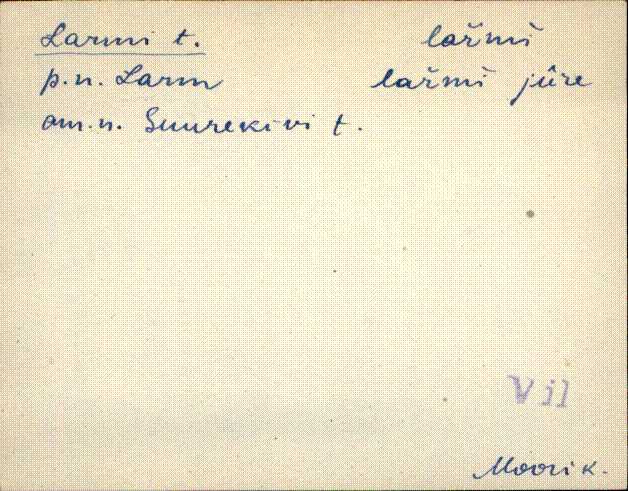 Larmi t. lařmi
p.n. Larm lařmi jûre
am.n. Suurekivi t.
Vil
Moori k.